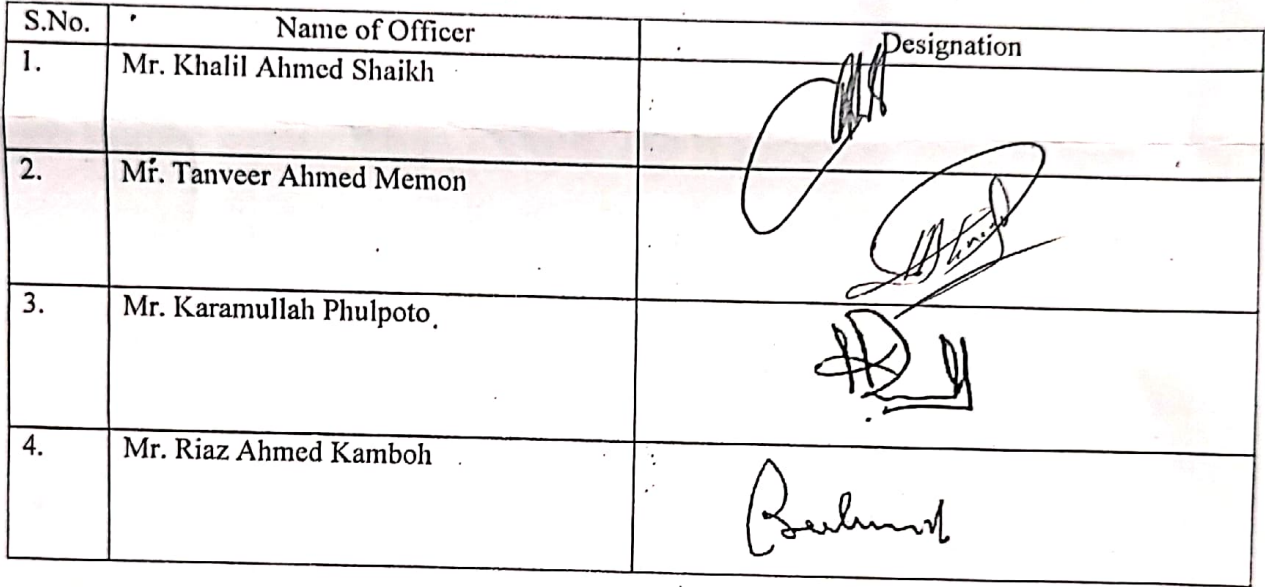 S.No. Name of Officer Designation
1. Mr. Khalil Ahmed Shaikh
2. Mr. Tanveer Ahmed Memon
3. Mr. Karamullah Phulpoto
4. Mr. Riaz Ahmed Kamboh